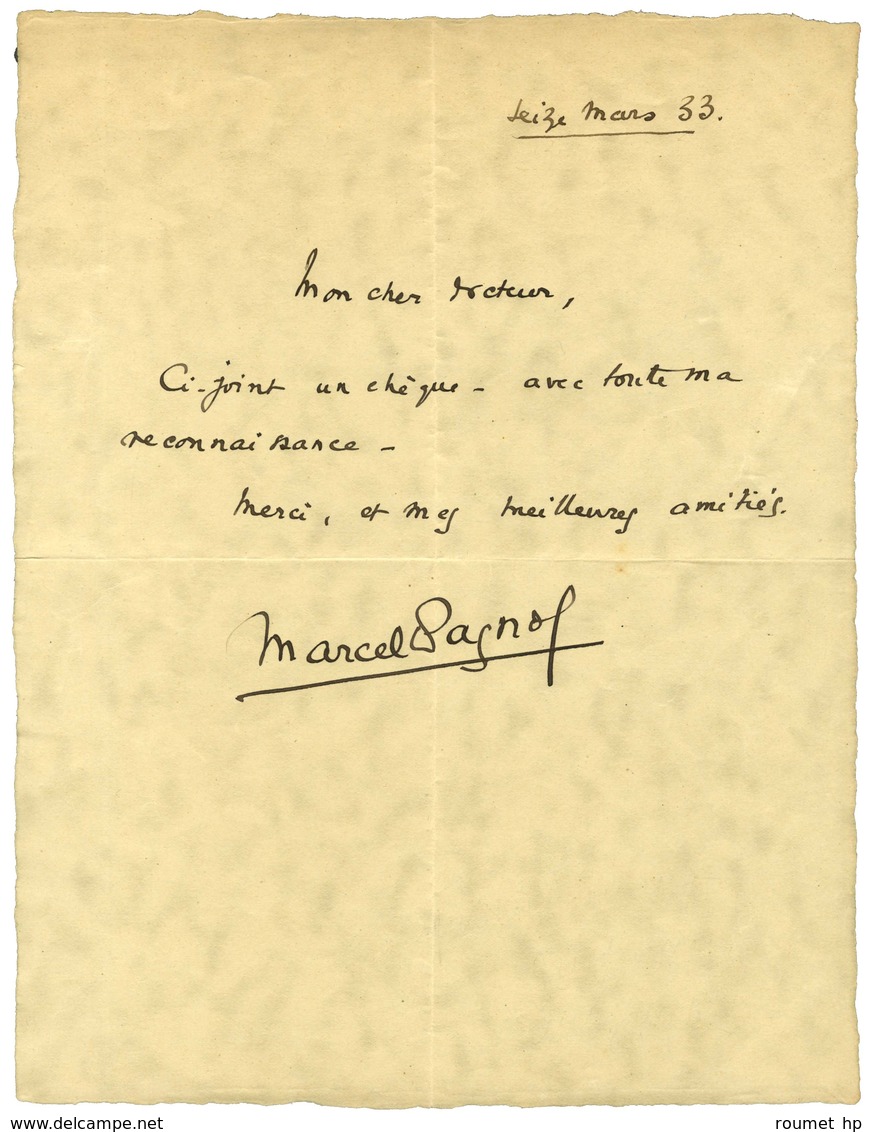 seize mars 33.
Mon cher docteur,
Ci-joint un chèque - avec toute ma
reconnaissance -
Merci, et mes meilleures amitiés.
Marcel Pagnol
www.delcampe.net
roumet hp